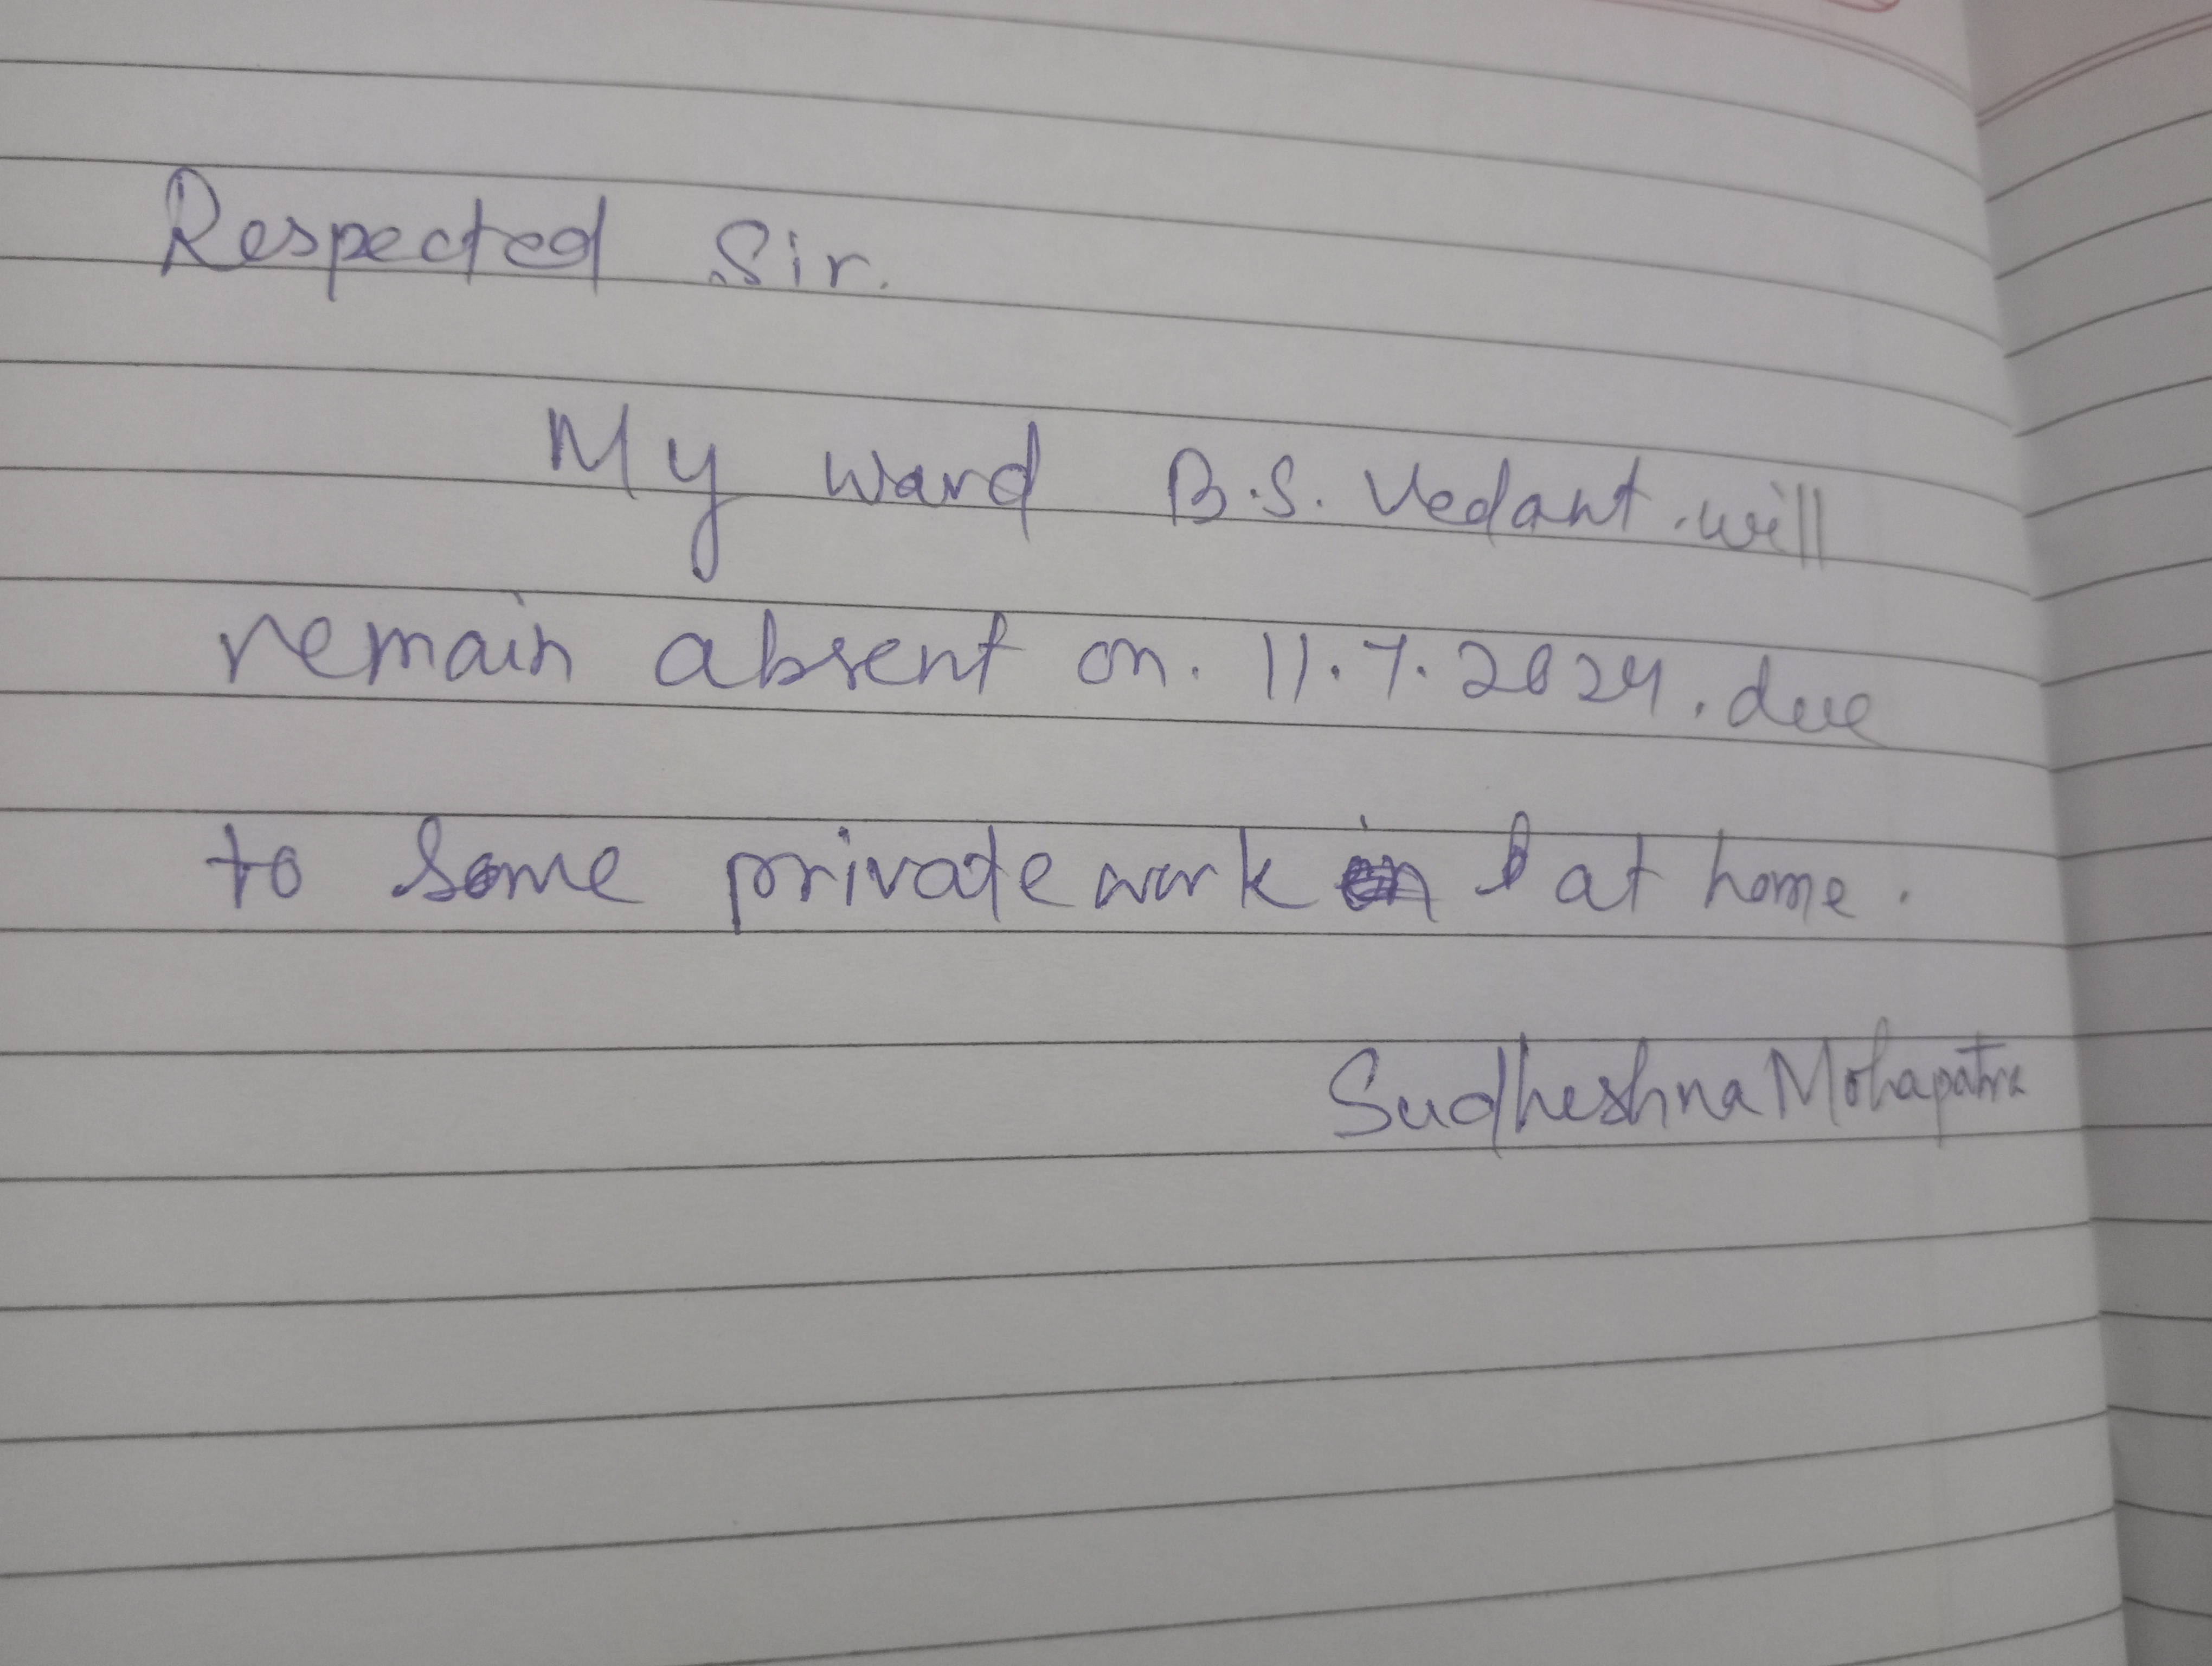 Respected Sir.
My ward B.S. Vedant. will
remain absent on. 11.7.2024. due
to some private work at home.
Sudheshna Mohapatra